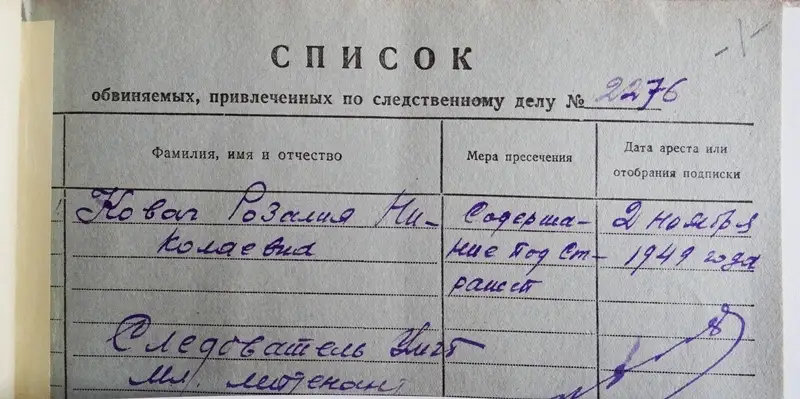 -1-
СПИСОК
обвиняемых, привлеченных по следственному делу № 2276
Фамилия, имя и отчество
Мера пресечения
Дата ареста или
отобрания подписки
Ковач Розалия Ни-
колаевна
Содержа-
ние под ст-
ражей
2 ноября
1949 года
Следователь УМГБ
Мл. лейтенант